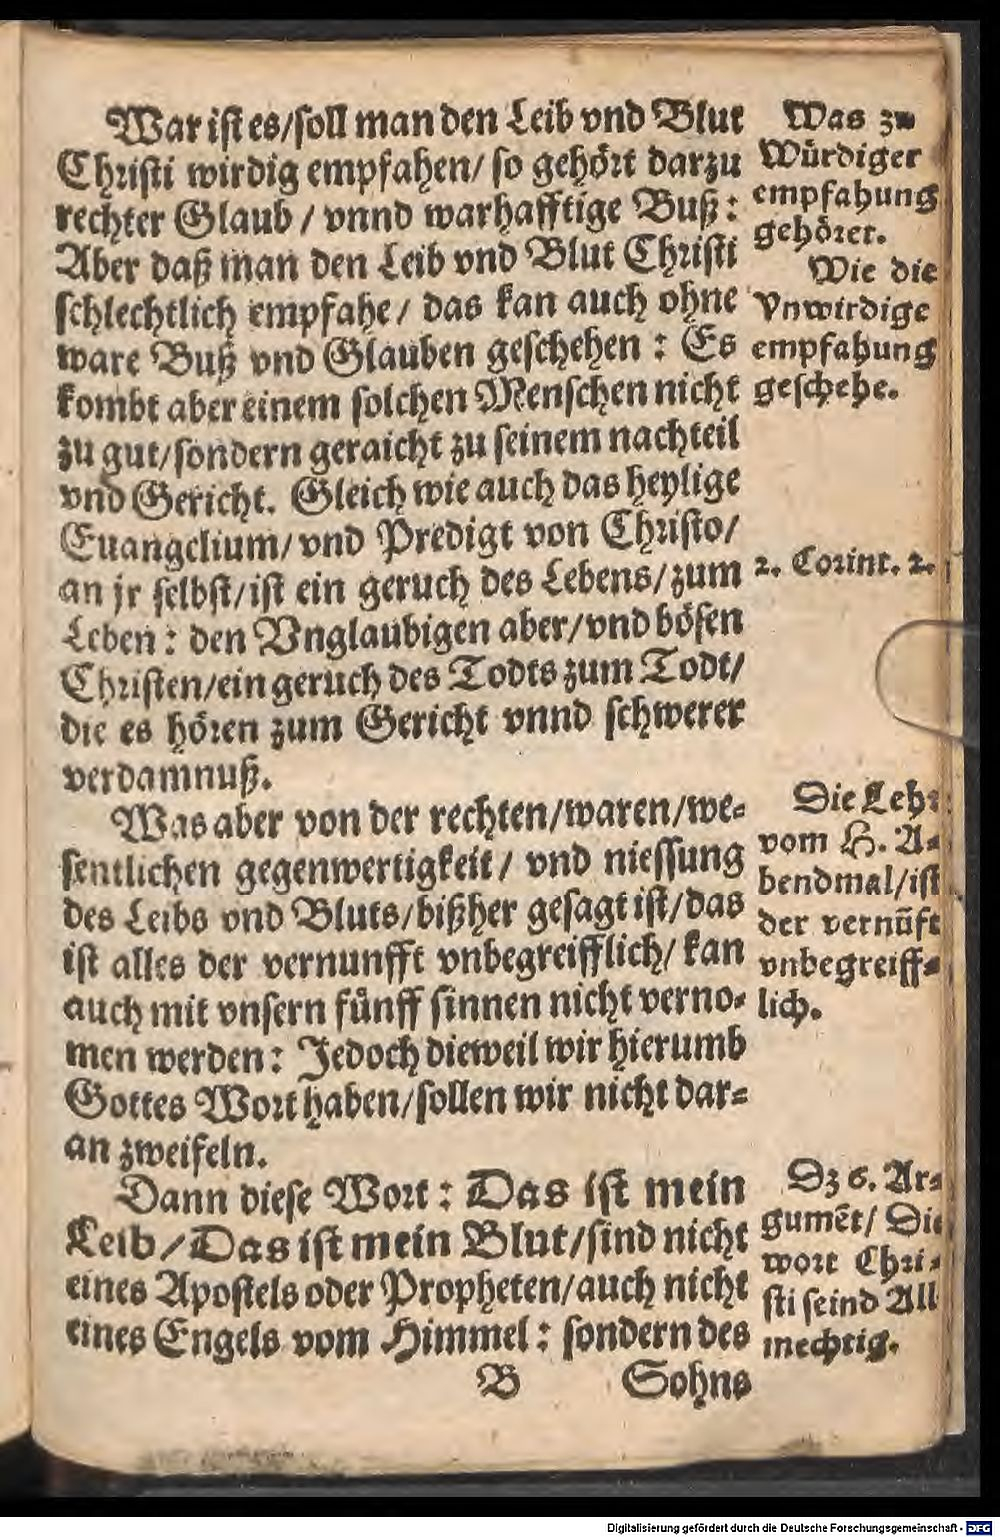 War ist es/soll man den Leib vnd Blut
Christi wirdig empfahen/ so gehört darzu
rechter Glaub / vnnd warhafftige Buß:
Aber daß man den Leib vnd Blut Christi
schlechtlich empfahe/ das kan auch ohne
ware Buß vnd Glauben geschehen: Es
kombt aber einem solchen Menschen nicht
zu gut/sondern geraicht zu seinem nachteil
vnd Gericht. Gleich wie auch das heylige
Euangelium/ vnd Predigt von Christo/
an jr selbst/ist ein geruch des Lebens/zum
Leben: den Vnglaubigen aber/vnd bösen
Christen/ein geruch des Todts zum Todt/
die es hören zum Gericht vnnd schwerer
verdamnuß.
Was aber von der rechten/waren/we-
sentlichen gegenwertigkeit/ vnd niessung
des Leibs vnd Bluts/bißher gesagt ist/das
ist alles der vernunfft vnbegreifflich/ kan
auch mit vnsern fünff sinnen nicht verno-
men werden: Jedoch dieweil wir hierumb
Gottes Wort haben/sollen wir nicht dar-
an zweifeln.
Dann diese Wort: Das ist mein
Leib/Das ist mein Blut/sind nicht
eines Apostels oder Propheten/auch nicht
eines Engels vom Himmel: sondern des
B Sohns
Was zu
Würdiger
empfahung
gehöret.
Wie die
Vnwirdige
empfahung
geschehe.
2. Corint. 2.
Die Lehr
vom H. A-
bendmal/ist
der vernũft
vnbegreiff-
lich.
Dz 6. Ar-
gumẽt/ Die
wort Chri-
sti seind All
mechtig.
Digitalisierung gefördert durch die Deutsche Forschungsgemeinschaft - DFG